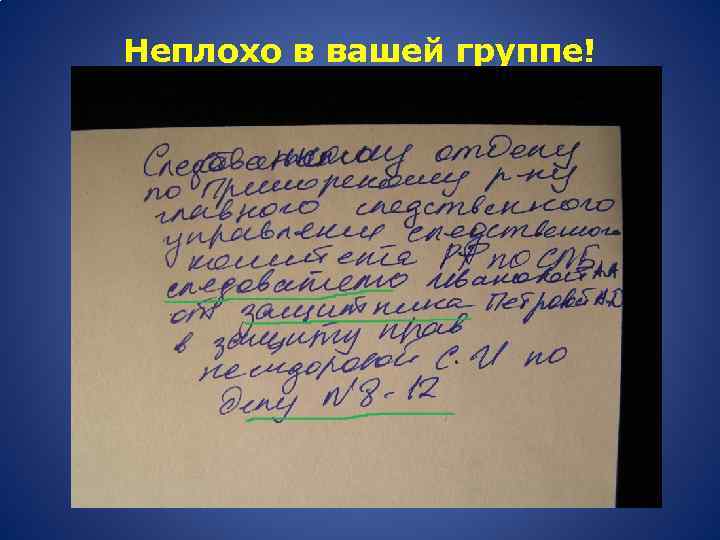 Неплохо в вашей группе!
Следственному отделу
по Приморскому р-ну
главного следственного
управления следственного
комитета РФ по СПБ
следователю Ивановой АА
от защитника Петровой АД
в защиту прав
песидоровой С.И по
делу N 8-12